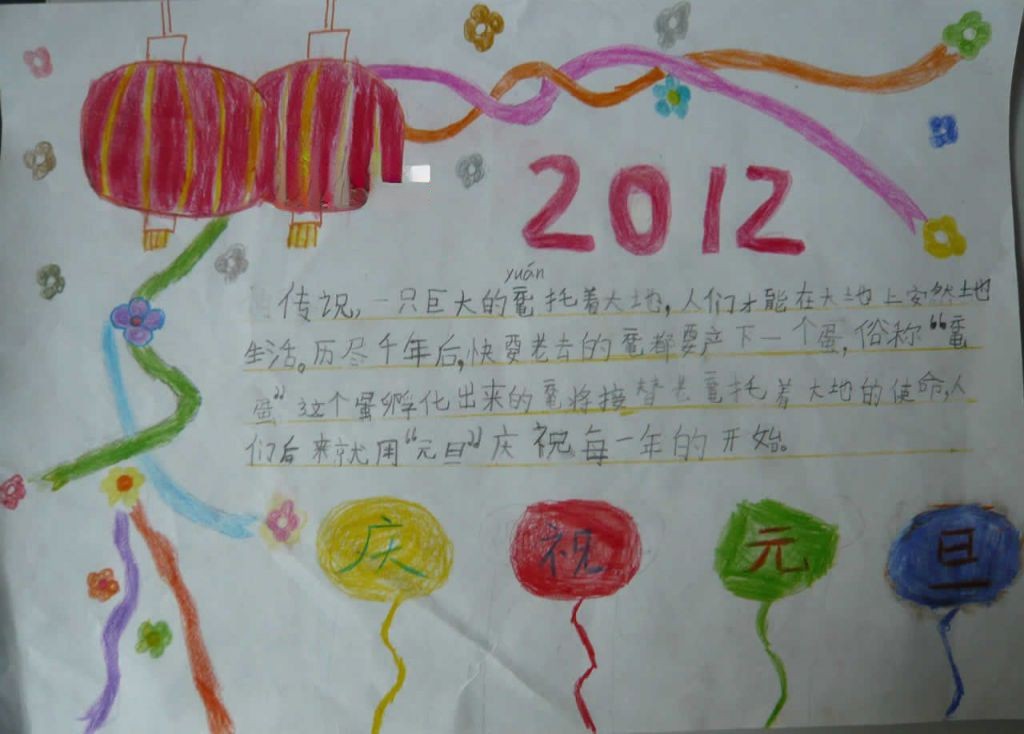 2012
yuán
传说,一只巨大的鼋托着大地,人们才能在大地上安然地
生活。历尽千年后,快要老去的鼋都要产下一个蛋,俗称“鼋
蛋”这个蛋孵化出来的鼋将接替老鼋托着大地的使命,人
们后来就用“元旦”庆祝每一年的开始。
庆 祝 元 旦